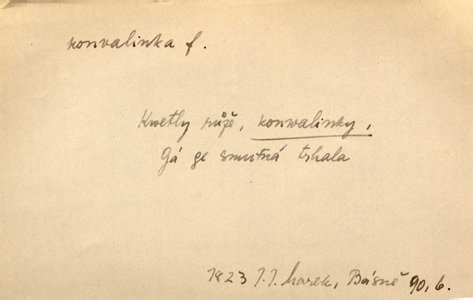 konvalinka f.
Kwetly růže, konwalinky,
Gá ge smutná trhala
1823 J. J. Marek, Básně 90, 6.